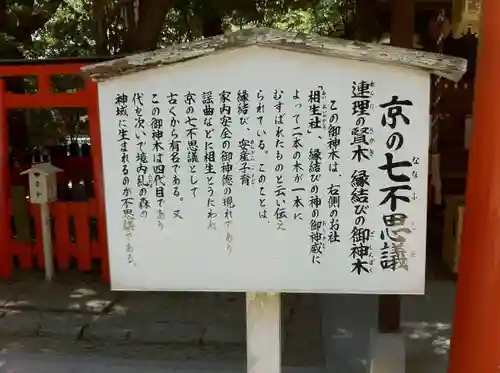 京の七不思議
連理の賢木 縁結びの御神木
この御神木は、右側のお社
「相生社」、縁結びの神の御神威に
よって二本の木が一本に
むすばれたものと云い伝え
られている。このことは
縁結び、安産、子育
家内安全の御神徳の現れであり
謡曲などに相生とうたわれ
京の七不思議として
古くから有名である。又
この御神木は四代目であり
代を次いで境内糺の森の
神域に生まれるのが不思議である。